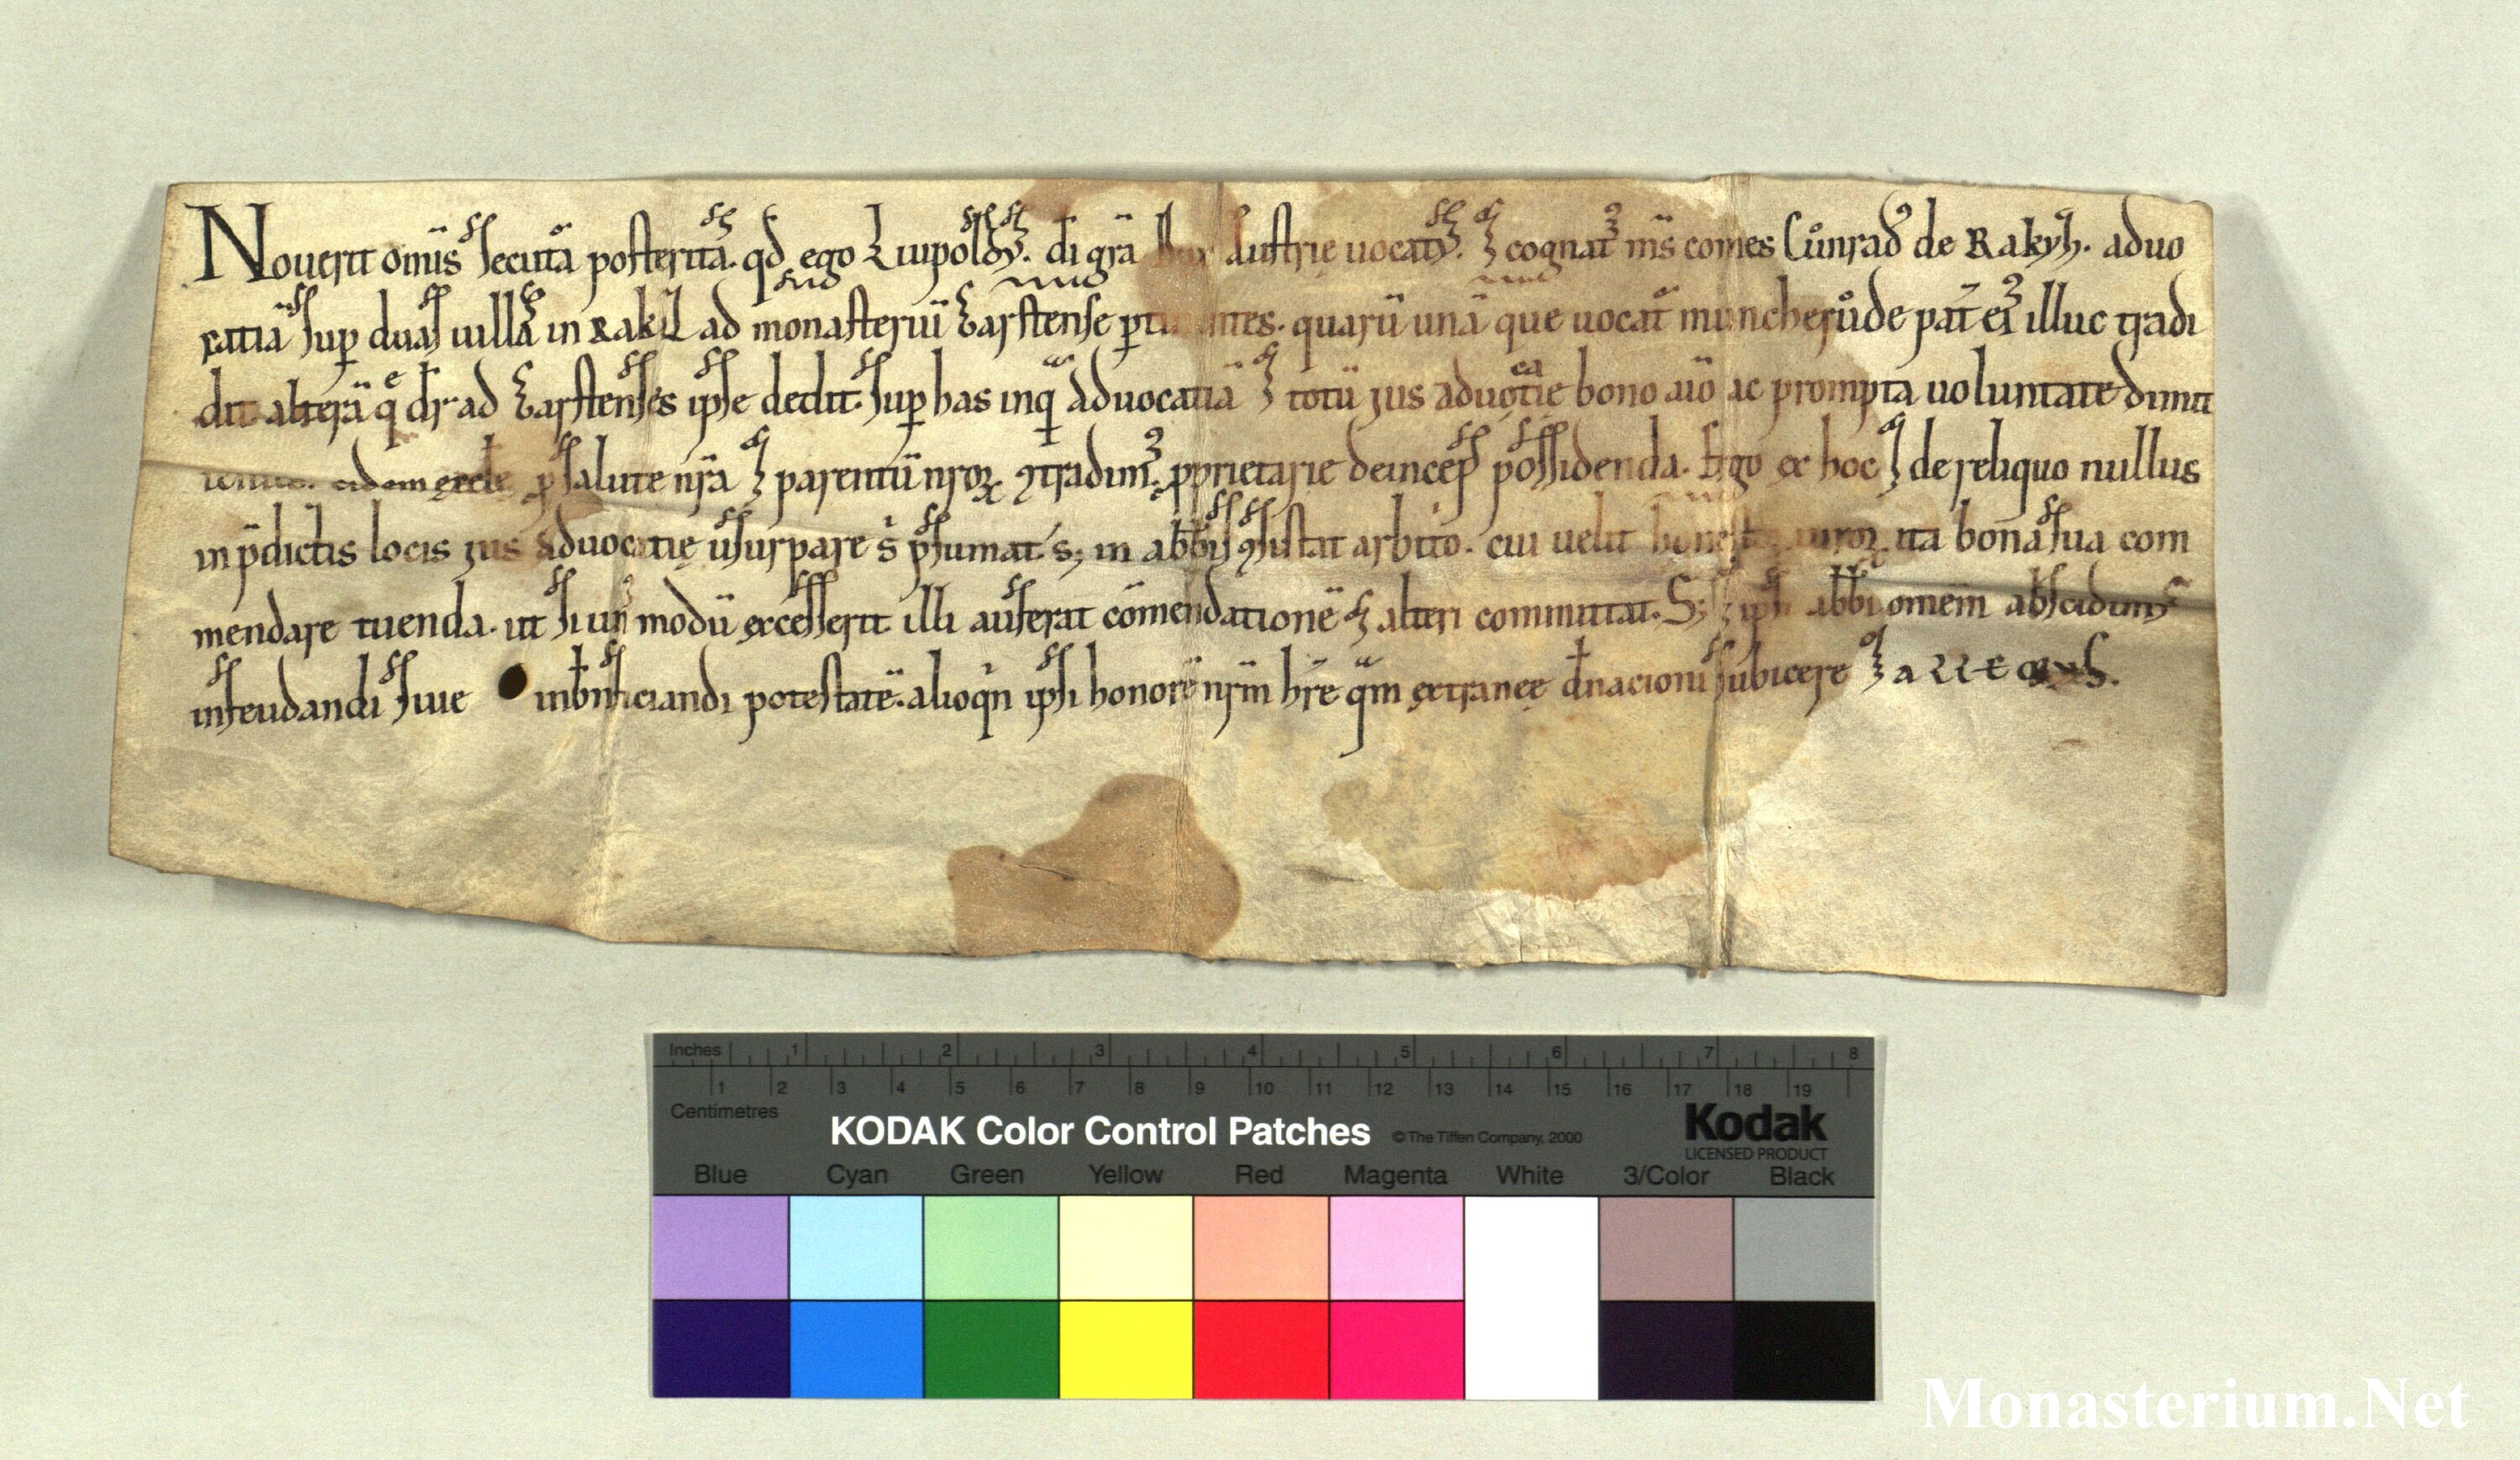 Nouerit om̅is secuta̅ posterita̅. qd̅ ego Liupoldꝰ. di̅ gr̅a dux Austrie uocatꝰ. ⁊ cognatꝰ m̅s comes Cůnradꝰ de Rakyh. aduo
catia̅ sup̱ duas uillas in Rakiz ad monasteriu̅ Garstense quaru̅ una̅ que uocat̅ muncherůde pat̅ eiꝰ illuc tradi
dit altera̅ q̅ dr̅ ad Garstenses ipse dedit. sup̱ has inq̅ᵃ aduocatia̅ ⁊ totu̅ jus aduocatie bono aı̅o ac prompta uoluntate dimit
eidem eccl̅e p̱ salute nr̅a ⁊ parentu̅ nroꝝ ꝯtradimꝰ. ꝓprietarie deinceps possidenda. Ergo ex hoc ⁊ de reliquo nullus
in p̅dictis locis jus aduocatie̜ usurpare s̅ p̅sumat. s; in abb̅is ꝯsistat arbit̅o. cui uelit ita bona sua com
mendare tuenda. ut si modu̅ excesserit illi auferat com̅endatione̅ ⁊ alteri committat. S; ⁊ ipsi abb̅i om̅em abscidimꝰ
infeudandi siue inb̅n̅ficiandi potestate̅. alioqⁱn ipsi honore̅ nr̅m hr̅e qᵃm extranee̜ d̅nacioni subicere ⁊
Inches 1 2 3 4 5 6 7 8
1 2 3 4 5 6 7 8 9 10 11 12 13 14 15 16 17 18 19
Centimetres
KODAK Color Control Patches ©The Tiffen Company, 2000 Kodak
LICENSED PRODUCT
Blue Cyan Green Yellow Red Magenta White 3/Color Black
Monasterium.Net